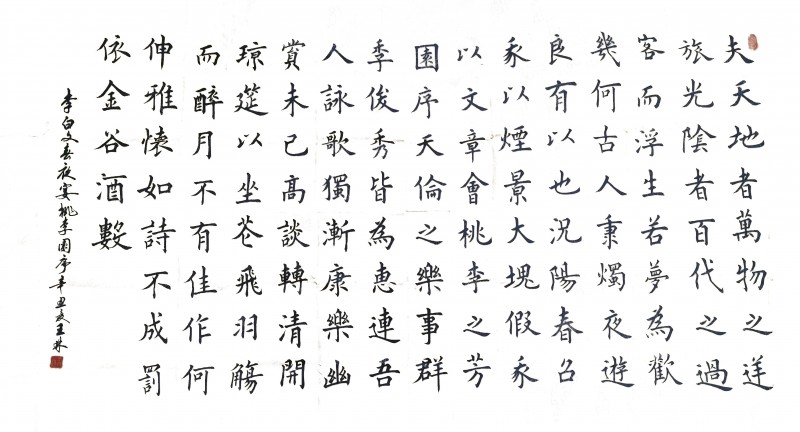 夫天地者萬物之逆
旅光陰者百代之過
客而浮生若夢為歡
幾何古人秉燭夜遊
良有以也況陽春召
我以煙景大塊假我
以文章會桃李之芳
園序天倫之樂事群
季俊秀皆為惠連吾
人詠歌獨漸康樂幽
賞未已高談轉清開
琼筵以坐花飛羽觴
而醉月不有佳作何
伸雅懷如詩不成罰
依金谷酒數
李白文春夜宴桃李園序辛丑王林